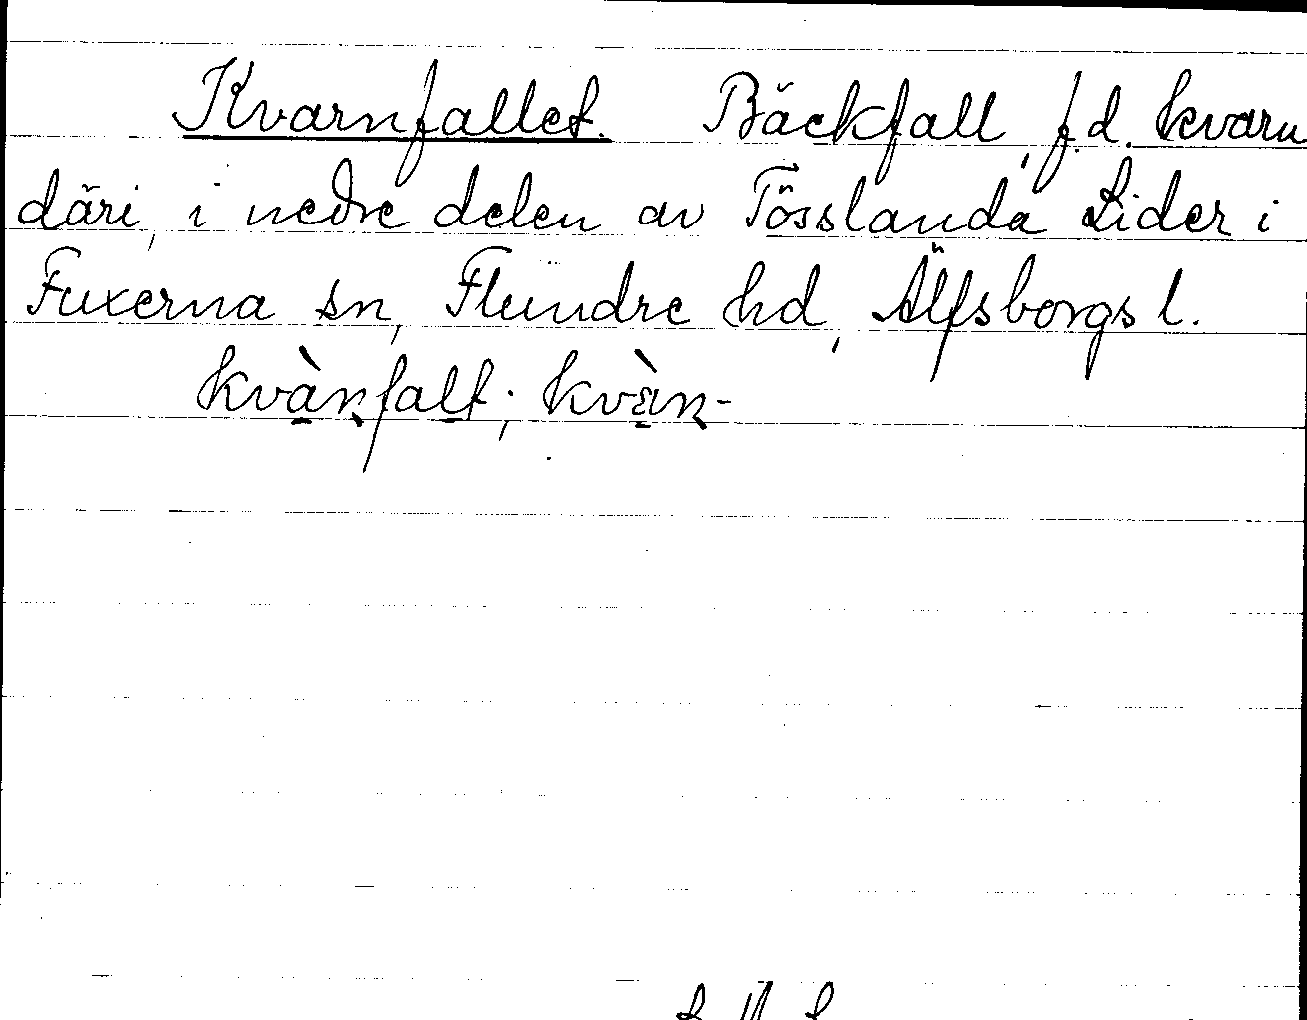 Kvarnfallet. Bäckfall, f.d. kvarn
däri, i nedre delen av Tösslanda Lider i
Fuxerna sn, Flundre hd, Älfsborgs l.
kvànfalt; kvàn-